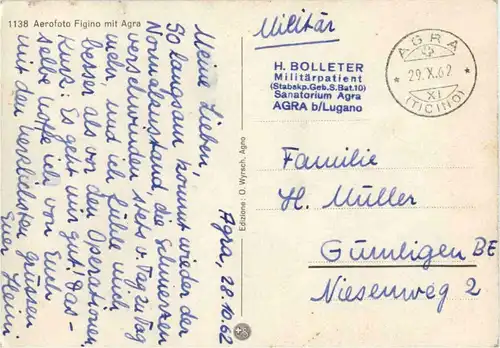 1138 Aerofoto Figino mit Agra
Agra, 28.10.62
Meine Lieben,
So langsam kommt wieder der
Normalzustand, die Schmerzen
verschwinden stets v. Tag zu Tag
mehr, und ich fühle mich
besser als vor den Operationen.
Kurz: Es geht mir gut! Das-
selbe hoffe ich von Euch
mit den herzlichsten Grüssen
Euer Hein.
Edizione: O. Wyrsch, Agno
Militär
H. BOLLETER
Militärpatient
(Stabskp.Geb.S.Bat.10)
Sanatorium Agra
AGRA b/Lugano
AGRA
* 29.X.62 *
XI
(TICINO)
Familie
H. Müller
Gümligen BE
Niesenweg 2